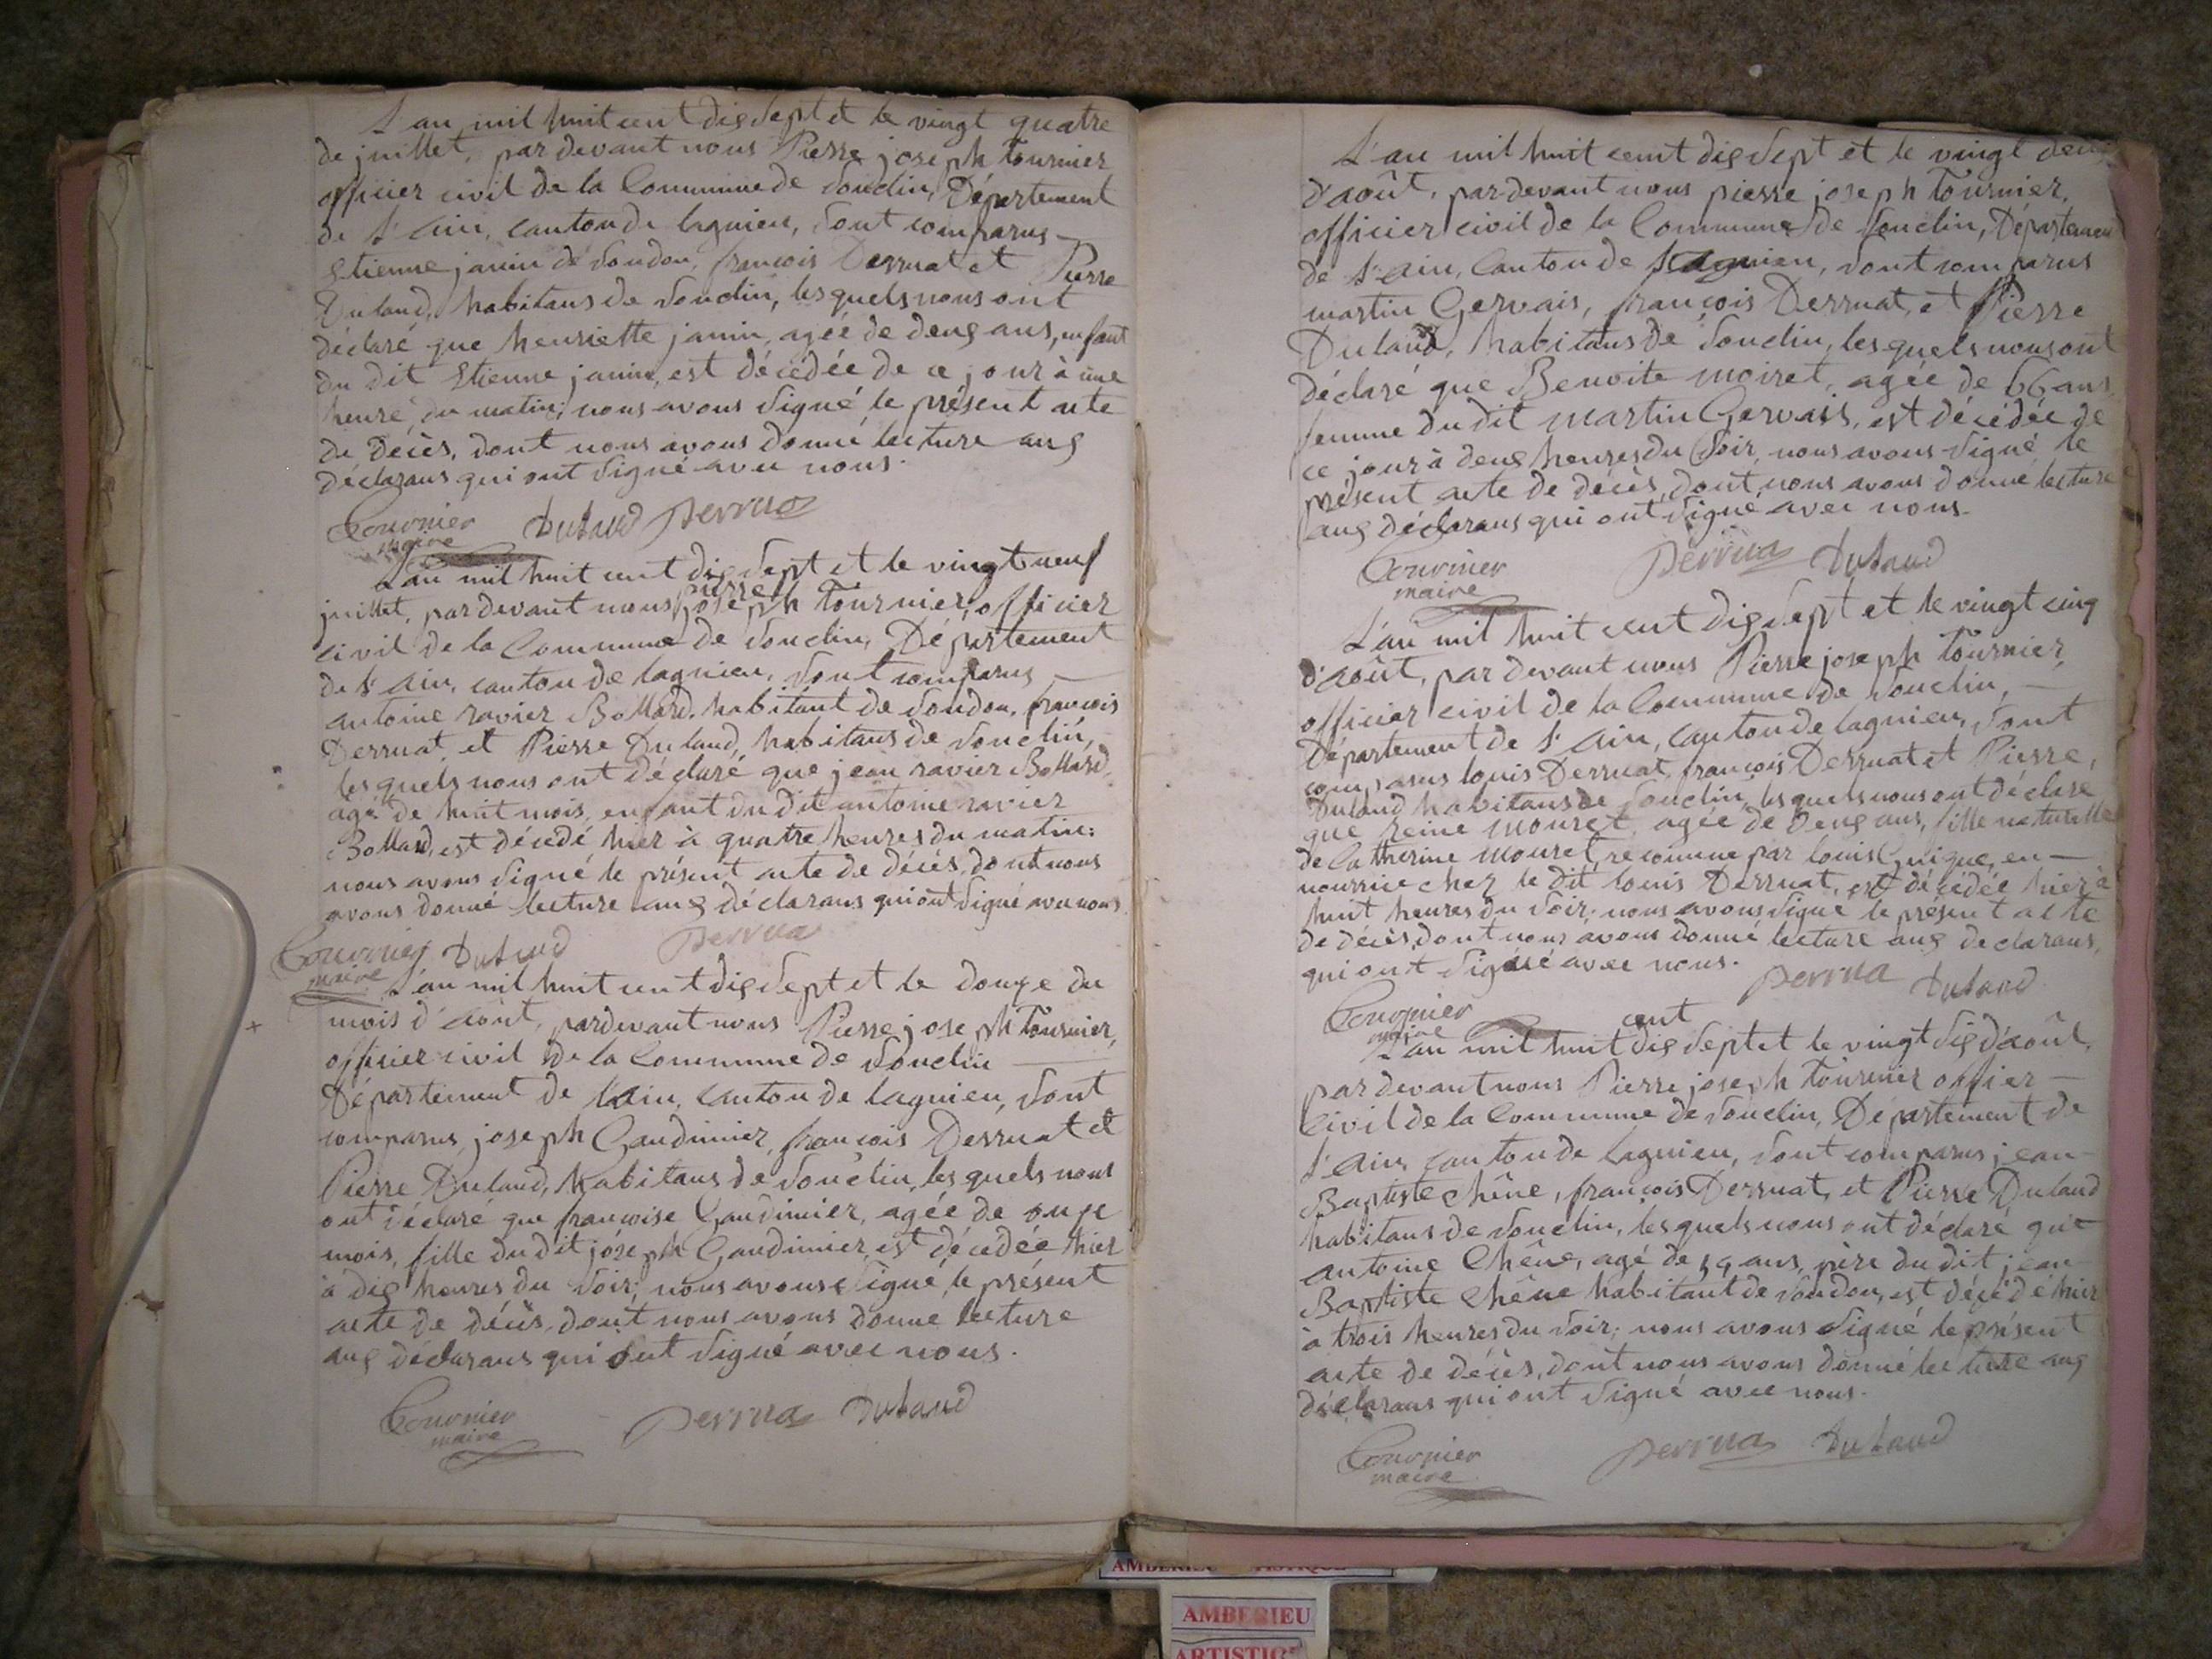 L'an mil huit cent dix Sept et le vingt quatre
de juillet, par devant nous Pierre joseph tournier
officier civil de la Commune de Souclin, Département
de l'ain, canton de lagnieu, Sont comparus
Etienne janin de Soudon, françois Derruat et Pierre
Duland, habitans de Souclin, les quels nous ont
déclaré que henriette janin, agée de deux ans, enfant
du dit Etienne janin, est décédée de ce jour à une
heure du matin; nous avons Signé le présent acte
de décès, dont nous avons donné lecture aux
déclarans qui ont Signé avec nous.
Tournier Duland Derrua
maire
L'an mil huit cent dix Sept et le vingt neuf
pierre
juillet, par devant nous joseph tournier, officier
civil de la Commune de Souclin, Département
de l'ain, canton de lagnieu, Sont comparus
antoine ravier Bollard, habitant de Soudon, françois
Derruat, et Pierre Duland, habitans de Souclin,
les quels nous ont déclaré que jean ravier Bollard,
agé de huit mois, enfant du dit antoine ravier
Bollard, est décédé hier à quatre heures du matin;
nous avons Signé le présent acte de décès, dont nous
avons donné lecture aux déclarans qui ont Signé avec nous.
Tournier Duland Derrua
maire
L'an mil huit cent dix Sept et le douze du
mois d'août, pardevant nous Pierre joseph tournier,
officier civil de la Commune de Souclin
Département de l'ain, canton de lagnieu, Sont
comparus joseph Gaudimier, françois Derruat et
Pierre Duland, habitans de Souclin, les quels nous
ont déclaré que françoise Gaudimier, agée de onze
mois, fille du dit joseph Gaudimier, est décedée hier
à dix heures du Soir; nous avons Signé le présent
acte de décès, dont nous avons donné lecture
aux déclarans qui ont Signé avec nous.
Tournier Derrua Duland
maire
L'an mil huit cent dix Sept et le vingt deux
d'août, par-devant nous pierre joseph tournier,
officier civil de la Commune de Souclin, Département
de l'ain, Canton de Lagnieu, Sont comparus
martin Gervais, françois Derruat, et Pierre
Duland, habitans de Souclin, les quels nous ont
déclaré que Benoite moiret, agée de 66 ans
femme du dit martin Gervais, est décédée de
ce jour à deux heures du Soir, nous avons Signé le
présent acte de décès, dont nous avons donné lecture
aux déclarans qui ont Signé avec nous.
Tournier Derrua Duland
maire
L'an mil huit cent dix Sept et le vingt cinq
d'août, par devant nous Pierre joseph tournier,
officier civil de la Commune de Souclin,
Département de l'ain, canton de lagnieu, Sont
comparus louis Derruat, françois Derruat et Pierre,
Duland habitans de Souclin, les quels nous ont déclaré
que reine mouret, agée de deux ans, fille naturelle
de Catherine mouret, reconnue par louis, en
nourrice chez le dit louis Derruat, est décédée hier à
huit heures du Soir; nous avons Signé le présent acte
de décès, dont nous avons donné lecture aux declarans,
qui ont Signé avec nous.
Tournier Derrua Duland
maire
cent
L'an mil huit dix Sept et le vingt Six d'août,
par devant nous Pierre joseph tournier offier
Civil de la Commune de Souclin, Département de
l'ain, canton de lagnieu, Sont comparus jean
Baptiste chêne, françois Derruat, et Pierre Duland
habitans de Souclin, les quels nous ont déclaré que
antoine Chêne, agé de ans, père du dit jean
Baptiste Chêne habitant de Soudon, est décédé hier
à trois heures du Soir; nous avons Signé le présent
acte de décès, dont nous avons donné lecture aux
déclarans qui ont Signé avec nous.
Tournier Derrua Duland
maire
AMBERIEU
ARTISTIQUE